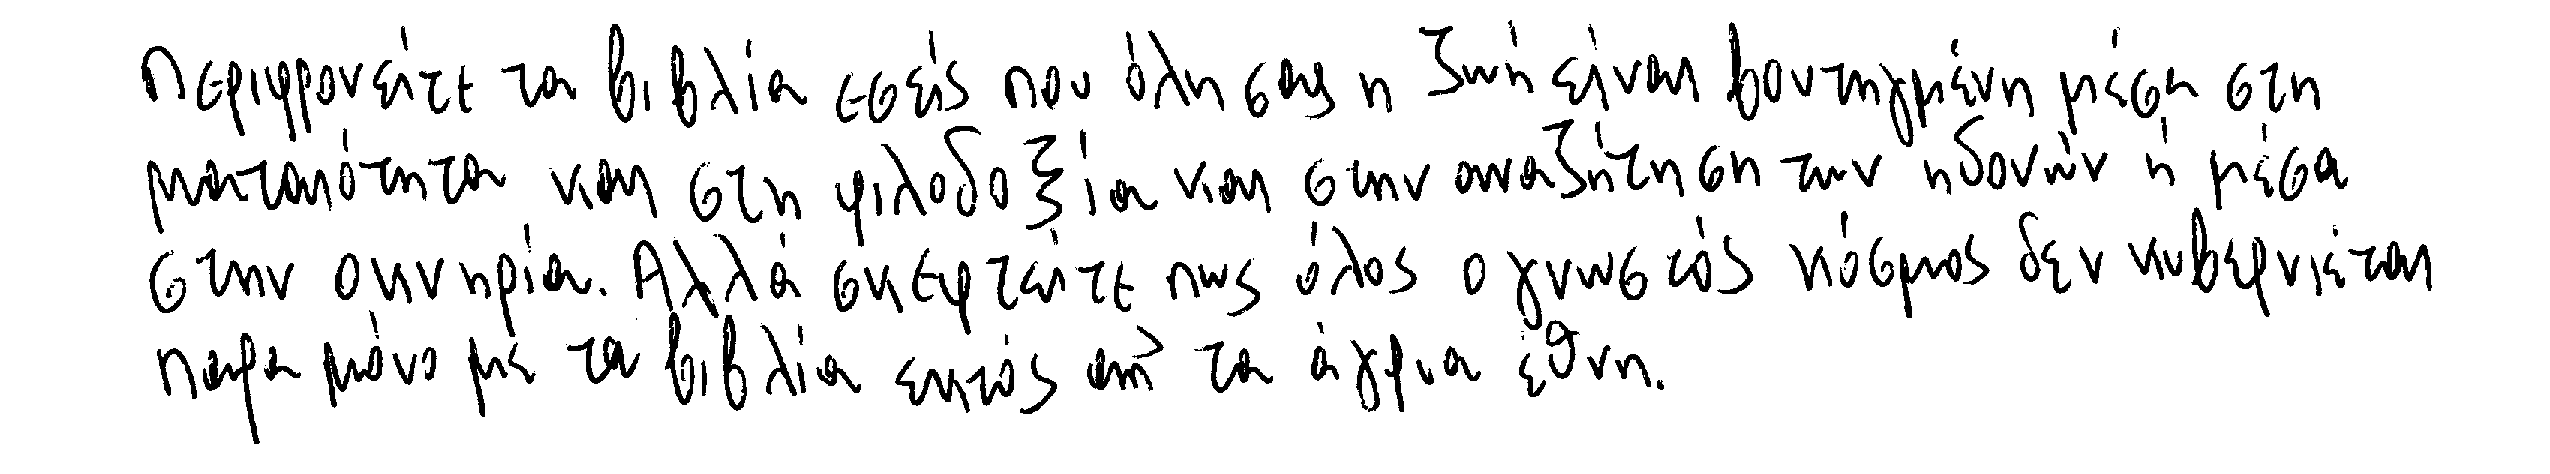 περιφρονείτε τα βιβλία εσείς που όλη σας η ζωή είναι βουτηγμένη μέσα στη
ματαιότητα και στη φιλοδοξία και στην αναζήτηση των ηδονών ή μέσα
στην οκνηρία. Αλλά σκεφτείτε πως όλος ο γνωστός κόσμος δεν κυβερνιέται
παρα μόνο με τα βιβλία εκτός απ' τα άγρια έθνη.